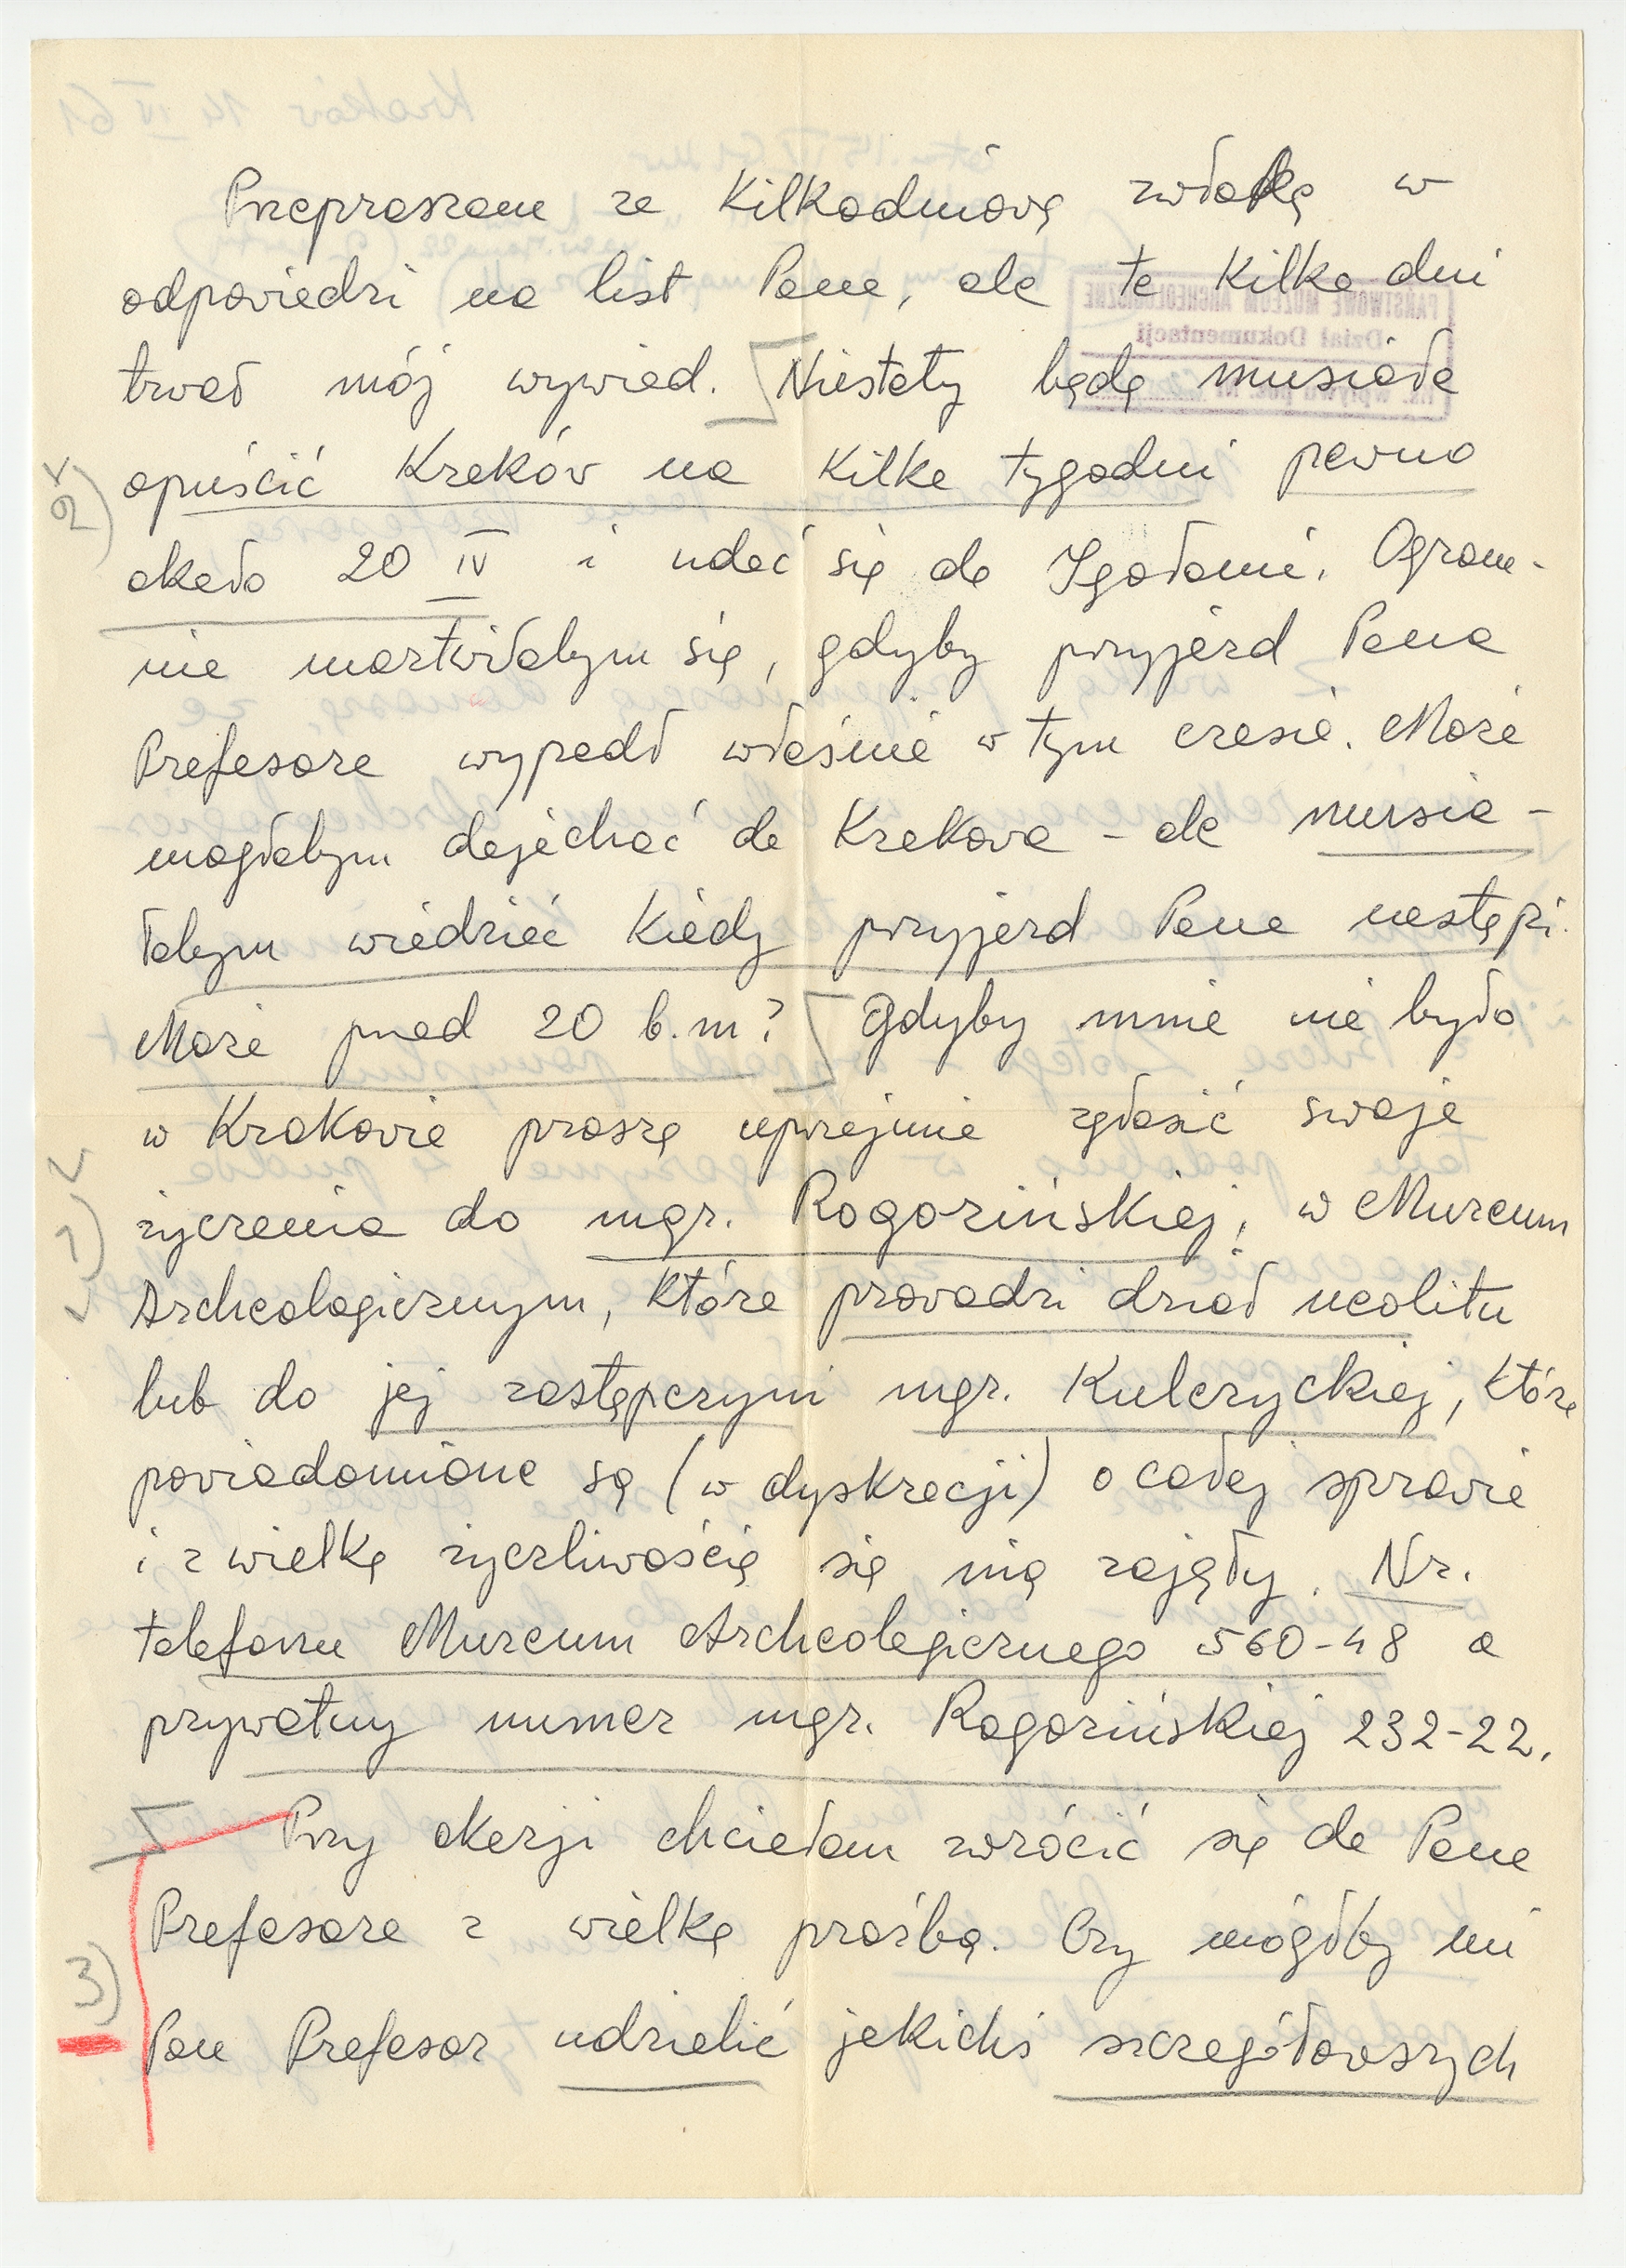 Przepraszam za kilkodniową zwłokę w
odpowiedzi na list Pana, ale te kilka dni
trwał mój wywiad. Niestety będę musiała
opuścić Kraków na kilka tygodni pewno
2)
około 20 IV i udać się do Igołomi. Ogrom-
nie martwiłabym się, gdyby przyjazd Pana
Profesora wypadł właśnie w tym czasie. Może
mogłabym dojechać do Krakowa - ale musia-
łabym wiedzieć kiedy przyjazd Pana nastąpi.
Może przed 20 b.m? Gdyby mnie nie było
w Krakowie proszę uprzejmie zgłosić swoje
życzenia do mgr. Rogozińskiej, w Muzeum
Archeologicznym, która prowadzi dział neolitu
lub do jej zastępczyni mgr. Kulczyckiej, które
powiadomione są (w dyskrecji) o całej sprawie
i z wielką życzliwością się nią zajęły. Nr.
telefonu Muzeum Archeologicznego 560-48 a
prywatny numer mgr. Rogozińskiej 232-22.
Przy okazji chciałam zwrócić się do Pana
Profesora z wielką prośbą. Czy mógłby mi
3)
Pan Profesor udzielić jakichś szczegółowszych